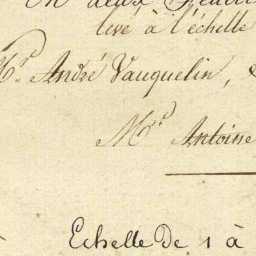 en deux
levé à l'échelle
Mrs. André Vauquelin, &
Mrs. Antoine
Echelle De 1 à